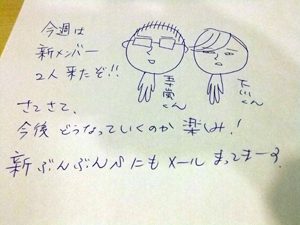 今週は
新メンバー
2人来たぞ!!
さてさて、
今後どうなっていくのか楽しみ!
新ぶんぶん♪にもメールまってまーす。